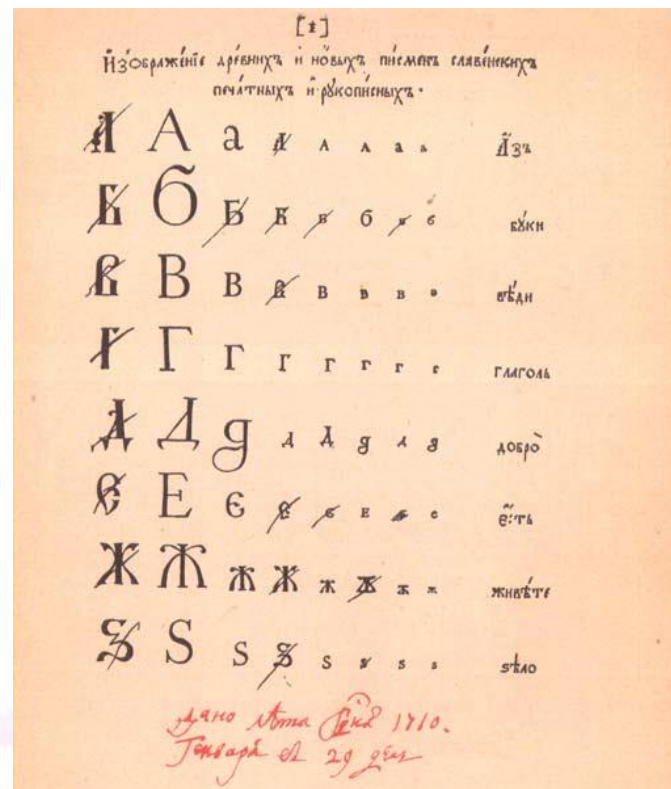 [1]
И҆зѡбраже́нїе дре́внихъ и҆ но́выхъ пи́сменъ славе́нскихъ
печа́тныхъ и҆ рꙋкопи́сныхъ.
А А а А А А а а А҆́зъ
Б Б Б Б Б б Б б бꙋ́ки
В В В В В В В В вѣ́ди
Г Г Г Г Г Г Г Г глаголь
Д Д д д Д д д д добро̀
Є Е є Є є Е є е є҆́ть
Ж Ж ж Ж ж Ж ж ж живѣ́те
Ѕ Ѕ ѕ Ѕ ѕ ѕ ѕ ѕ ѕѣло
Дано лѣта 1710.
Генваря в 29 день